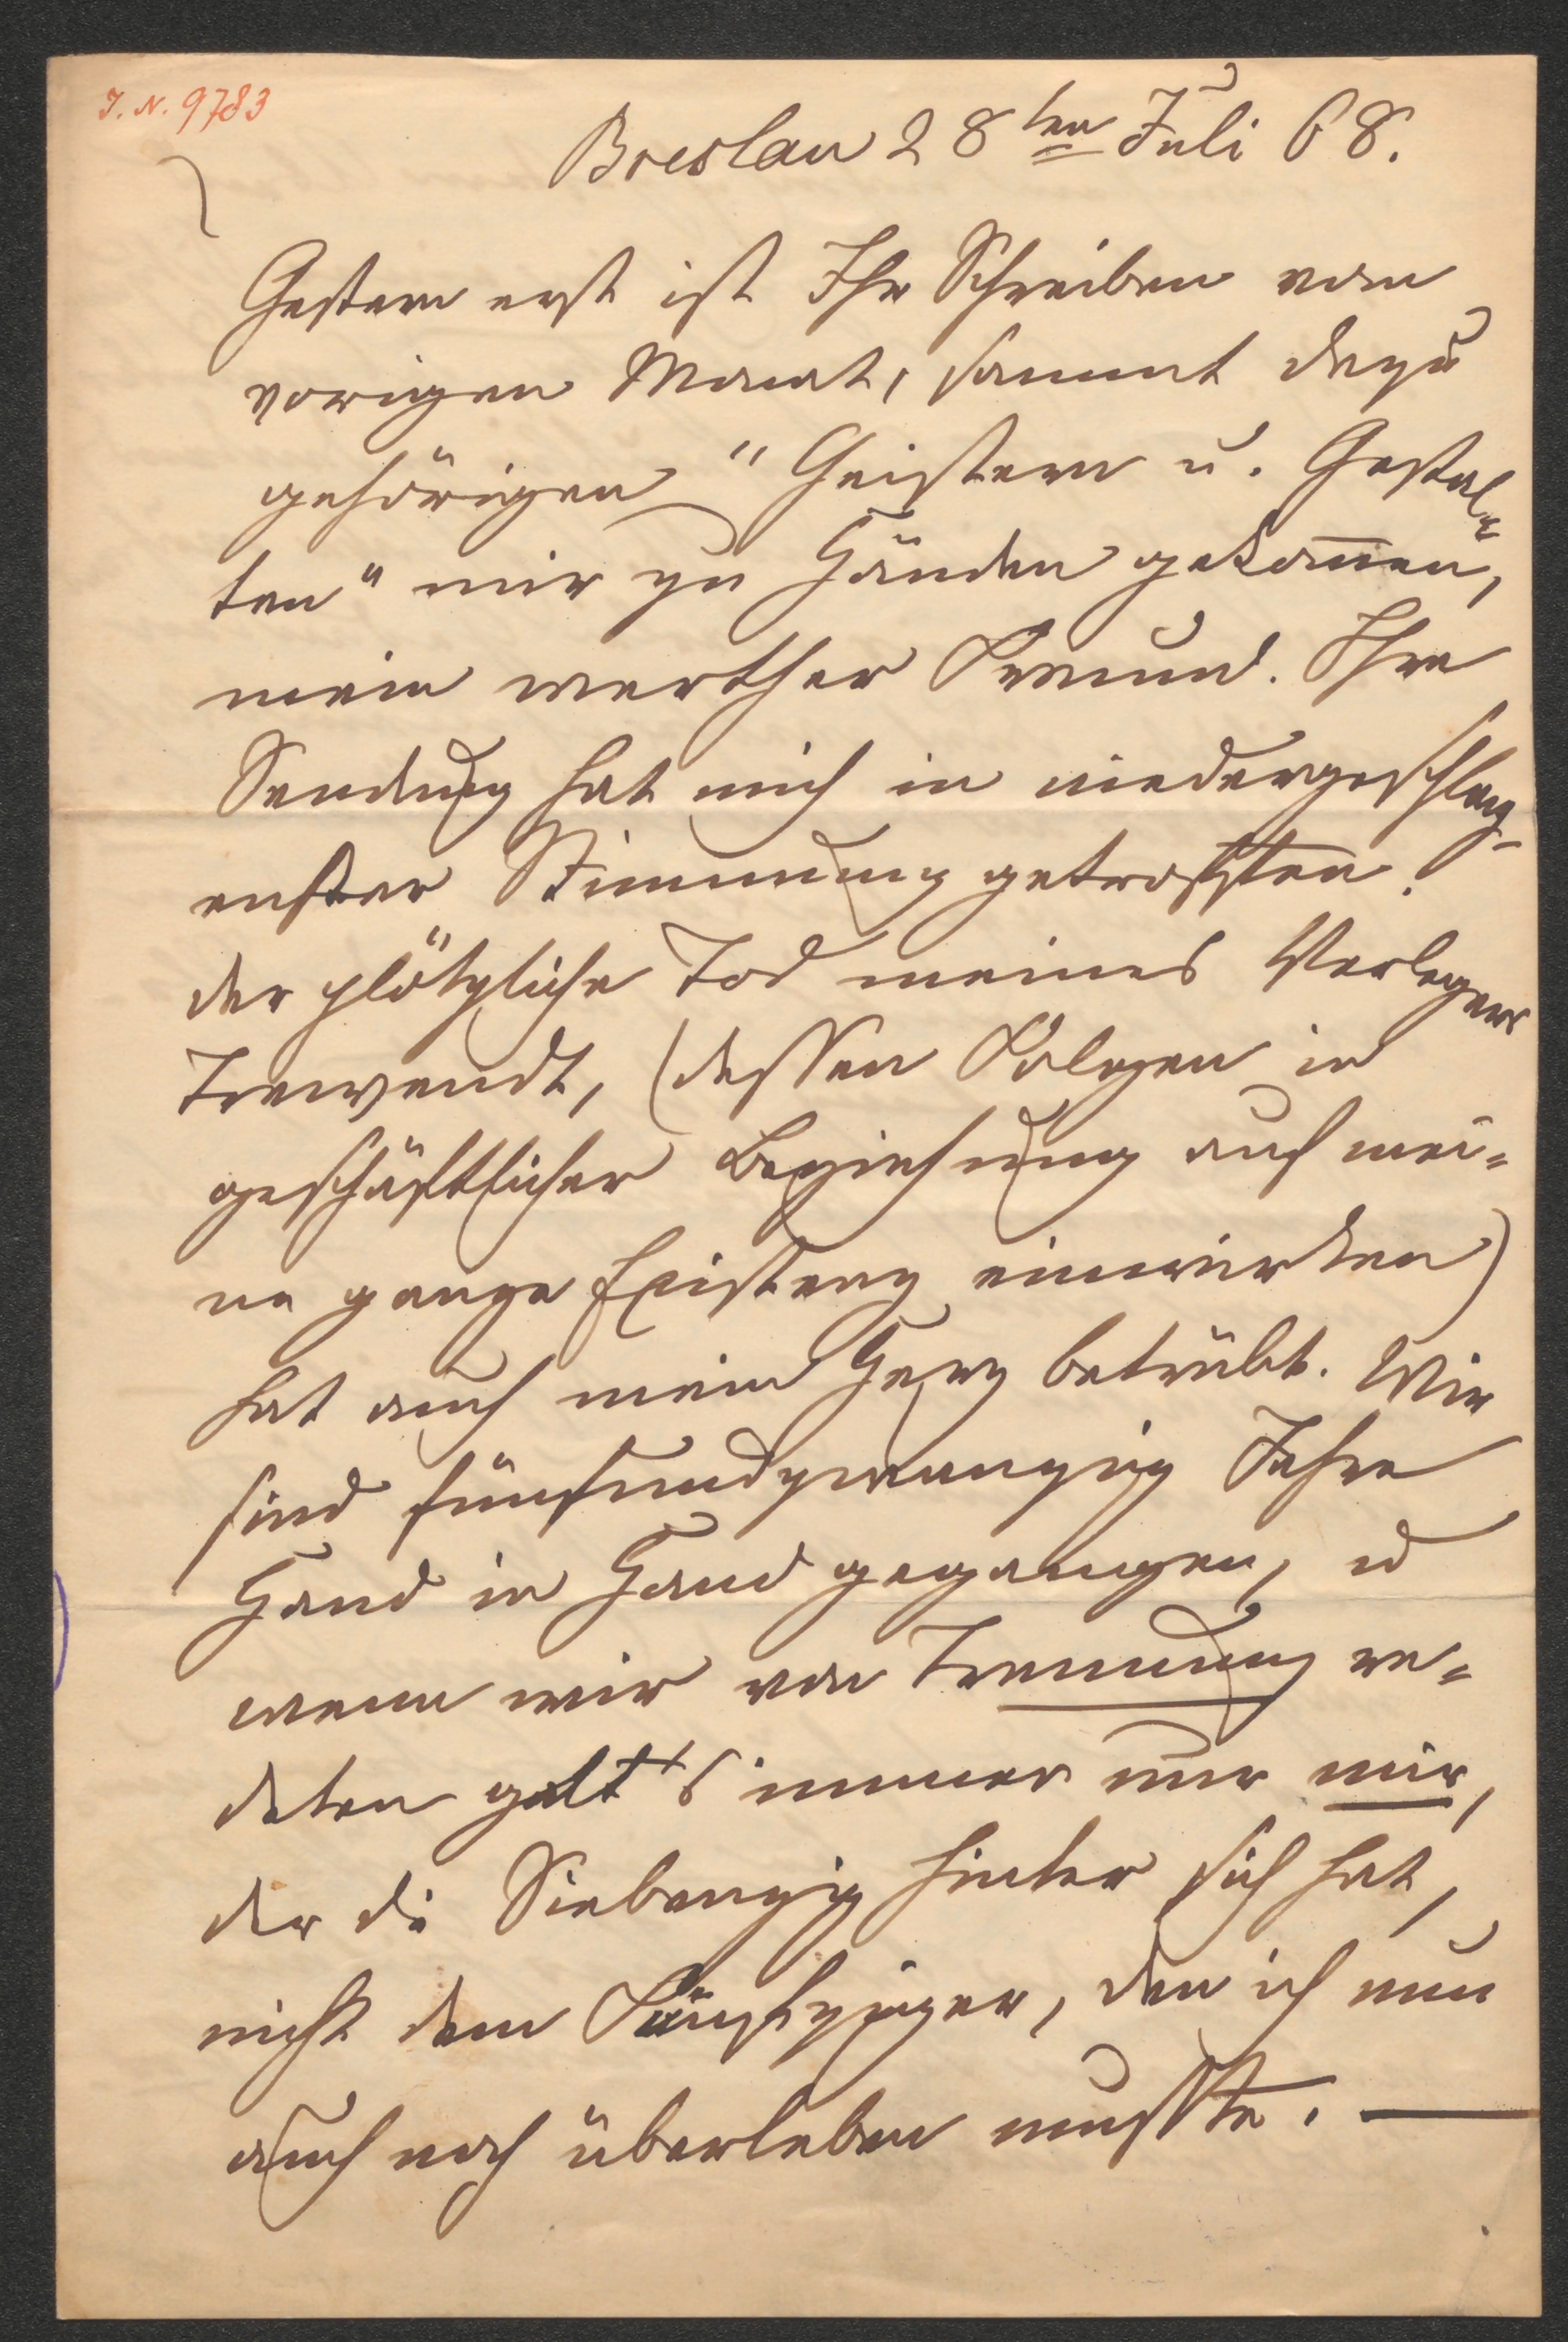 J. N. 9783
Breslau 28ten Juli 68.
Gestern erst ist Ihr Schreiben vom
vorigen Monat, sammt dazu
gehörigen "Geistern u. Gestal=
ten" mir zu Händen gekom̄en,
mein werther Freund. Ihre
Sendung hat mich in niedergeschlag-
enster Stimmung getroffen.
der plötzliche Tod meines Verlegers
Trewendt, (dessen Folgen in
geschäftlicher Beziehung auf mei=
ne ganze Existenz einwirken)
hat auch mein Herz betrübt. Wir
sind fünfundzwanzig Jahre
Hand in Hand gegangen, u
wenn wir von Trennung re=
deten galt's immer nur mir,
der die Siebenzig hinter sich hat,
nicht dem Fünfziger, den ich nun
auch noch überleben mußte. —